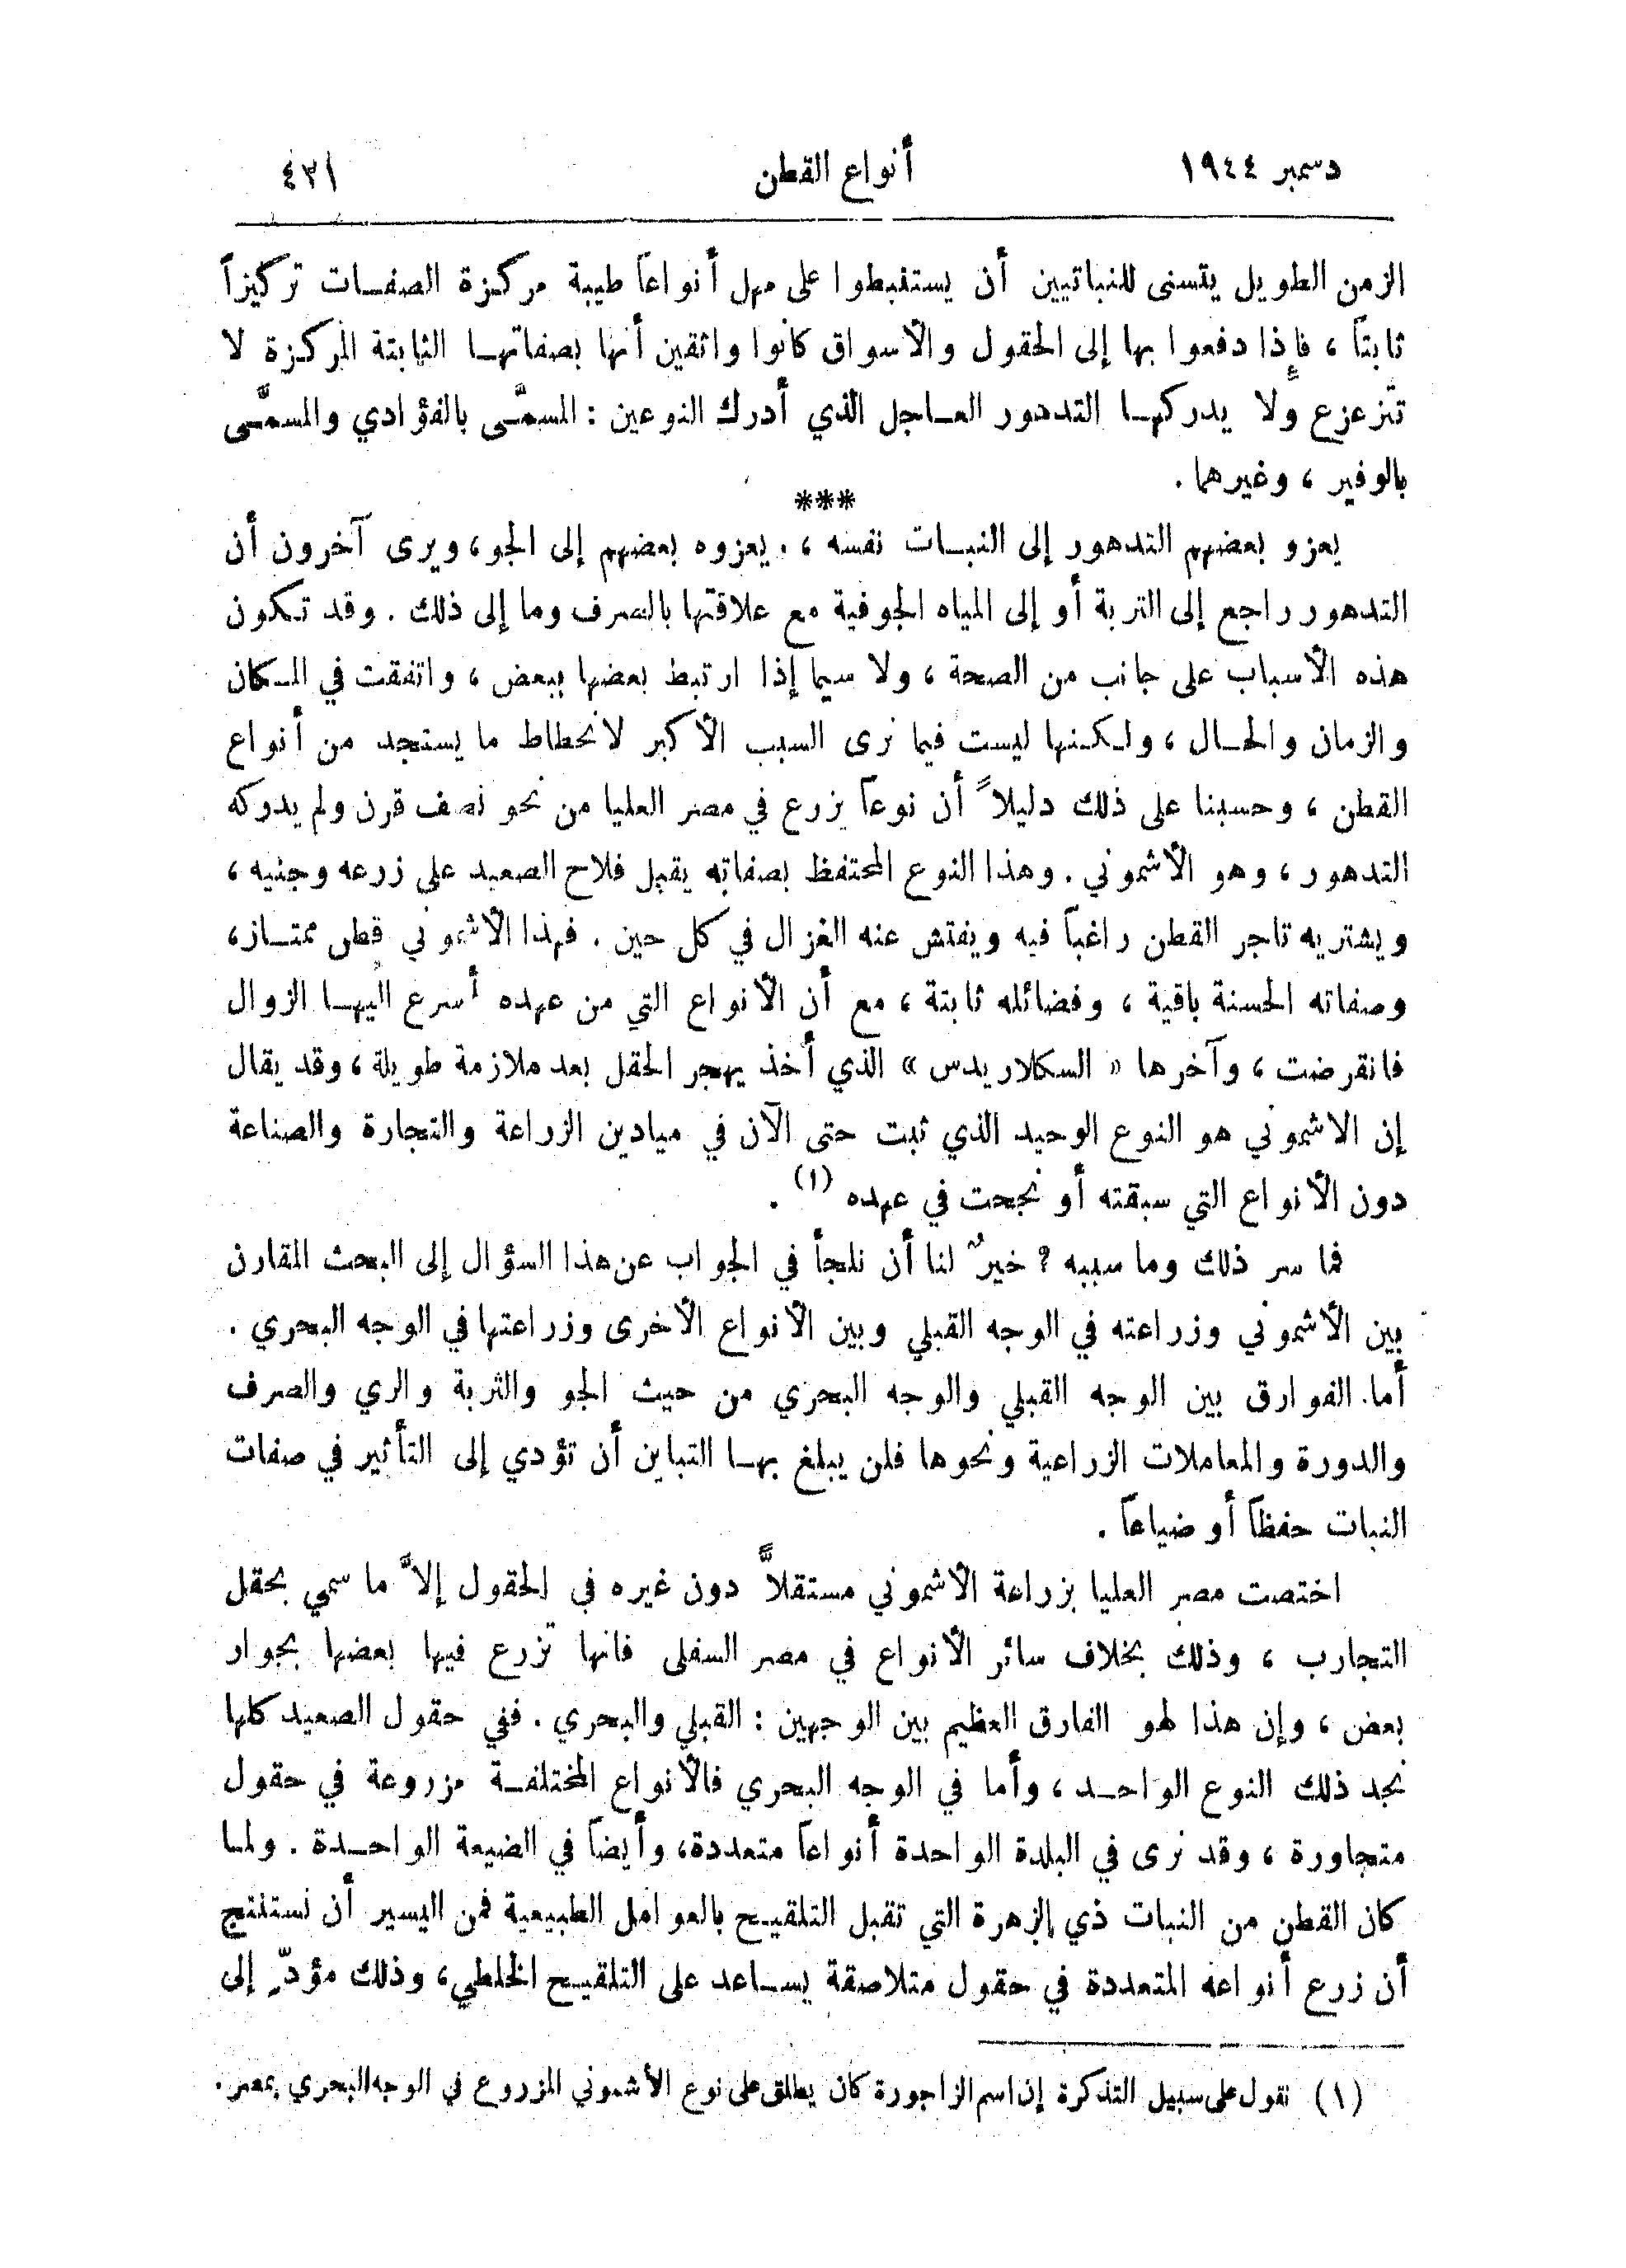 دسمبر ١٩٤٤ أنواع القطن ٤٣١
الزمن الطويل يتسنى للنباتيين أن يستنبطوا على مهل أنواعاً طيبة مركزة الصفات تركيزاً
ثابتاً ، فإذا دفعوا بها إلى الحقول والأسواق كانوا واثقين أنها بصفاتها الثابتة المركزة لا
تتزعزع ولا يدركها التدهور العاجل الذي أدرك النوعين : المسمَّى بالفؤادي والمسمَّى
بالوفير ، وغيرهما .
***
يعزو بعضهم التدهور إلى النبات نفسه ، . يعزوه بعضهم إلى الجو ، ويرى آخرون أن
التدهور راجع إلى التربة أو إلى المياه الجوفية مع علاقتها بالصرف وما إلى ذلك . وقد تكون
هذه الأسباب على جانب من الصحة ، ولا سيما إذا ارتبط بعضها ببعض ، واتفقت في المكان
والزمان والحال ، ولكنها ليست فيما نرى السبب الأكبر لانحطاط ما يستجد من أنواع
القطن ، وحسبنا على ذلك دليلاً أن نوعاً يزرع في مصر العليا من نحو نصف قرن ولم يدركه
التدهور ، وهو الأشموني . وهذا النوع المحتفظ بصفاته يقبل فلاح الصعيد على زرعه وجنيه ،
ويشتريه تاجر القطن راغباً فيه ويفتش عنه الغزال في كل حين . فهذا الأشموني قطن ممتاز ،
وصفاته الحسنة باقية ، وفضائله ثابتة ، مع أن الأنواع التي من عهده أسرع اليها الزوال
فانقرضت ، وآخرها « السكلاريدس » الذي أخذ يهجر الحقل بعد ملازمة طويلة ، وقد يقال
إن الاشموني هو النوع الوحيد الذي ثبت حتى الآن في ميادين الزراعة والتجارة والصناعة
دون الأنواع التي سبقته أو نجحت في عهده (١) .
فما سر ذلك وما سببه ؟ خيرٌ لنا أن نلجأ في الجواب عن هذا السؤال إلى البحث المقارن
بين الأشموني وزراعته في الوجه القبلي وبين الأنواع الأخرى وزراعتها في الوجه البحري .
أما الفوارق بين الوجه القبلي والوجه البحري من حيث الجو والتربة والري والصرف
والدورة والمعاملات الزراعية ونحوها فلن يبلغ بها التباين أن تؤدي إلى التأثير في صفات
النبات حفظاً أو ضياعاً .
اختصت مصر العليا بزراعة الأشموني مستقلاًّ دون غيره في الحقول إلاَّ ما سمي بحقل
التجارب ، وذلك بخلاف سائر الأنواع في مصر السفلى فانها تزرع فيها بعضها بجوار
بعض ، وإن هذا لهو الفارق العظيم بين الوجهين : القبلي والبحري . ففي حقول الصعيد كلها
نجد ذلك النوع الواحد ، وأما في الوجه البحري فالأنواع المختلفة مزروعة في حقول
متجاورة ، وقد نرى في البلدة الواحدة أنواعاً متعددة ، وأيضاً في الضيعة الواحدة . ولما
كان القطن من النبات ذي الزهرة التي تقبل التلقيح بالعوامل الطبيعية فمن اليسير أن نستنتج
أن زرع أنواعه المتعددة في حقول متلاصقة يساعد على التلقيح الخلطي ، وذلك مؤدٍّ إلى
(١) نقول على سبيل التذكرة إن اسم الزاجورة كان يطلق على نوع الأشموني المزروع في الوجه البحري بمصر .